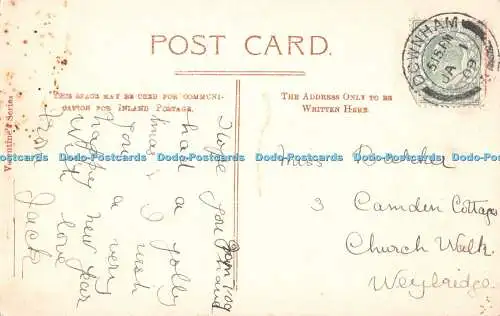 POST CARD.
THIS SPACE MAY BE USED FOR COMMUNI-
CATION FOR INLAND POSTAGE.
THE ADDRESS ONLY TO BE
WRITTEN HERE.
Valentine's Series
DOWNHAM
5.15 PM
JA 1
09
I hope you
had a jolly
Xmas, & wish
you a very
happy new year
with love
Jack
Miss Belcher
3 Camden Cottages
Church Walk
Weybridge.
Dodo-Postcards Dodo-Postcards Dodo-Postcards Dodo-Postcards Dodo-Postcards